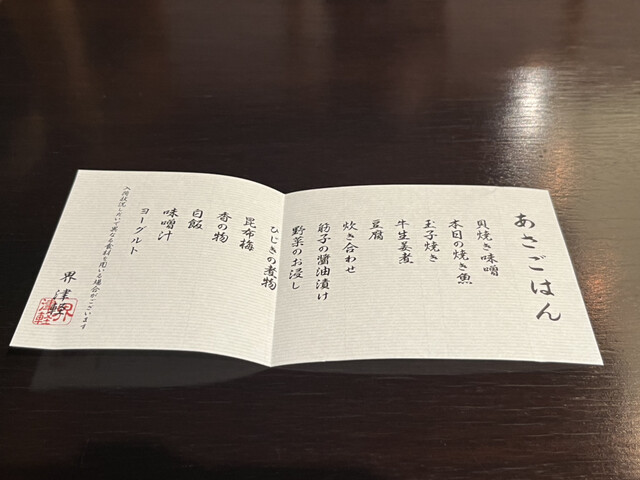 あさごはん
貝焼き味噌
本日の焼き魚
玉子焼き
牛生姜煮
豆腐
炊き合わせ
筋子の醤油漬け
野菜のお浸し
ひじきの煮物
昆布梅
香の物
白飯
味噌汁
ヨーグルト
入荷状況しだいで異なる食材を用いる場合がございます
界 津軽
界津軽